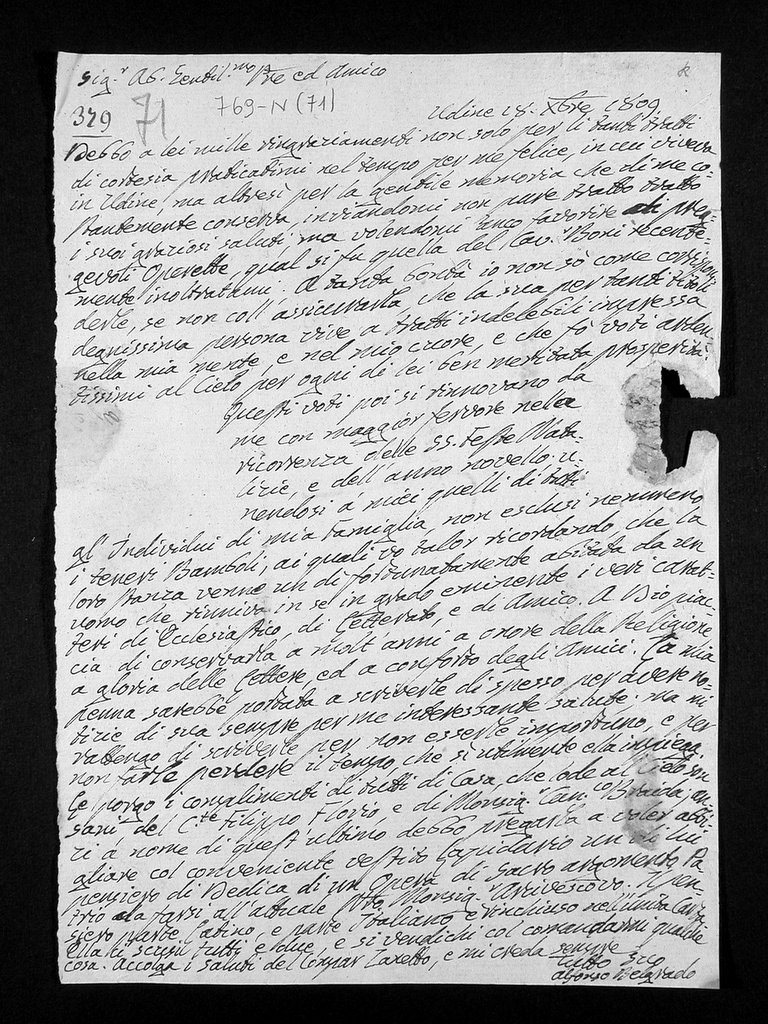 Sig.r Ab. Gentil.mo Pne ed Amico
329 71 769-N (71) Udine 18. Xbre 1809
Debbo a lei mille ringraziamenti non solo per li tanti tratti
di cortesia praticatimi nel tempo per me felice, in cui viveva
in Udine, ma altresì per la gentile memoria che di me co-
stantemente conserva, inviandomi non pure tratto tratto
i suoi graziosi saluti, ma volendomi anco favorire di preg-
gevoli Operette, qual si fu quella del Cav.r Boni recente-
mente inoltratami. A tanta bontà io non sò come corrispon-
derle, se non coll' assicurarla, che la sua per tanti titoli
degnissima persona vive a tratti indelebili impressa
nella mia mente, e nel mio cuore, e che fò voti arden-
tissimi al Cielo per ogni di lei ben meritata prosperità.
Questi voti poi si rinnovano da
me con maggior fervore nella
ricorrenza delle SS. Feste Nata-
lizie, e dell'anno novello u-
nendosi a' miei quelli di tutti
gl' Individui di mia Famiglia, non esclusi nemmeno
i teneri Bamboli, ai quali vo talor ricordando, che la
loro stanza venne un dì fortunatamente abitata da un
uomo che riuniva in se in grado eminente i veri carat-
teri di Ecclesiastico, di Letterato, e di Amico. A Dio piac-
cia di conservarla a molt' anni a onore della Religione
a gloria delle Lettere, ed a conforto degli Amici. La mia
penna sarebbe portata a scriverle di spesso per avere no-
tizie di sua sempre per me interessante salute: ma mi
rattengo di scriverle per non esserle importuno, e per
non farle perdere il tempo, che sì utilmente ella impiega
Le porgo i complimenti di tutti di Casa, che lode al Cielo son
sani del C.te Filippo Florio e di Monsig.r Can.co Braida, an-
zi a nome di quest' ultimo debbo pregarla a voler abbi-
gliare col conveniente vestito Lapidario un di lui
pensiero di Dedica di un Opera di Sacro argomento Pa-
trio da farsi all' attuale Monsig.r Arcivescovo. Il pen-
siero parte Latino, e parte Italiano è rinchiuso nell' unita Carta
Ella ci scusi tutti e due, e si vendichi col comandarmi qualche
cosa. Accolga i saluti del Compar Zanetto, e mi creda sempre
Tutto Suo
Alfonso Belgrado